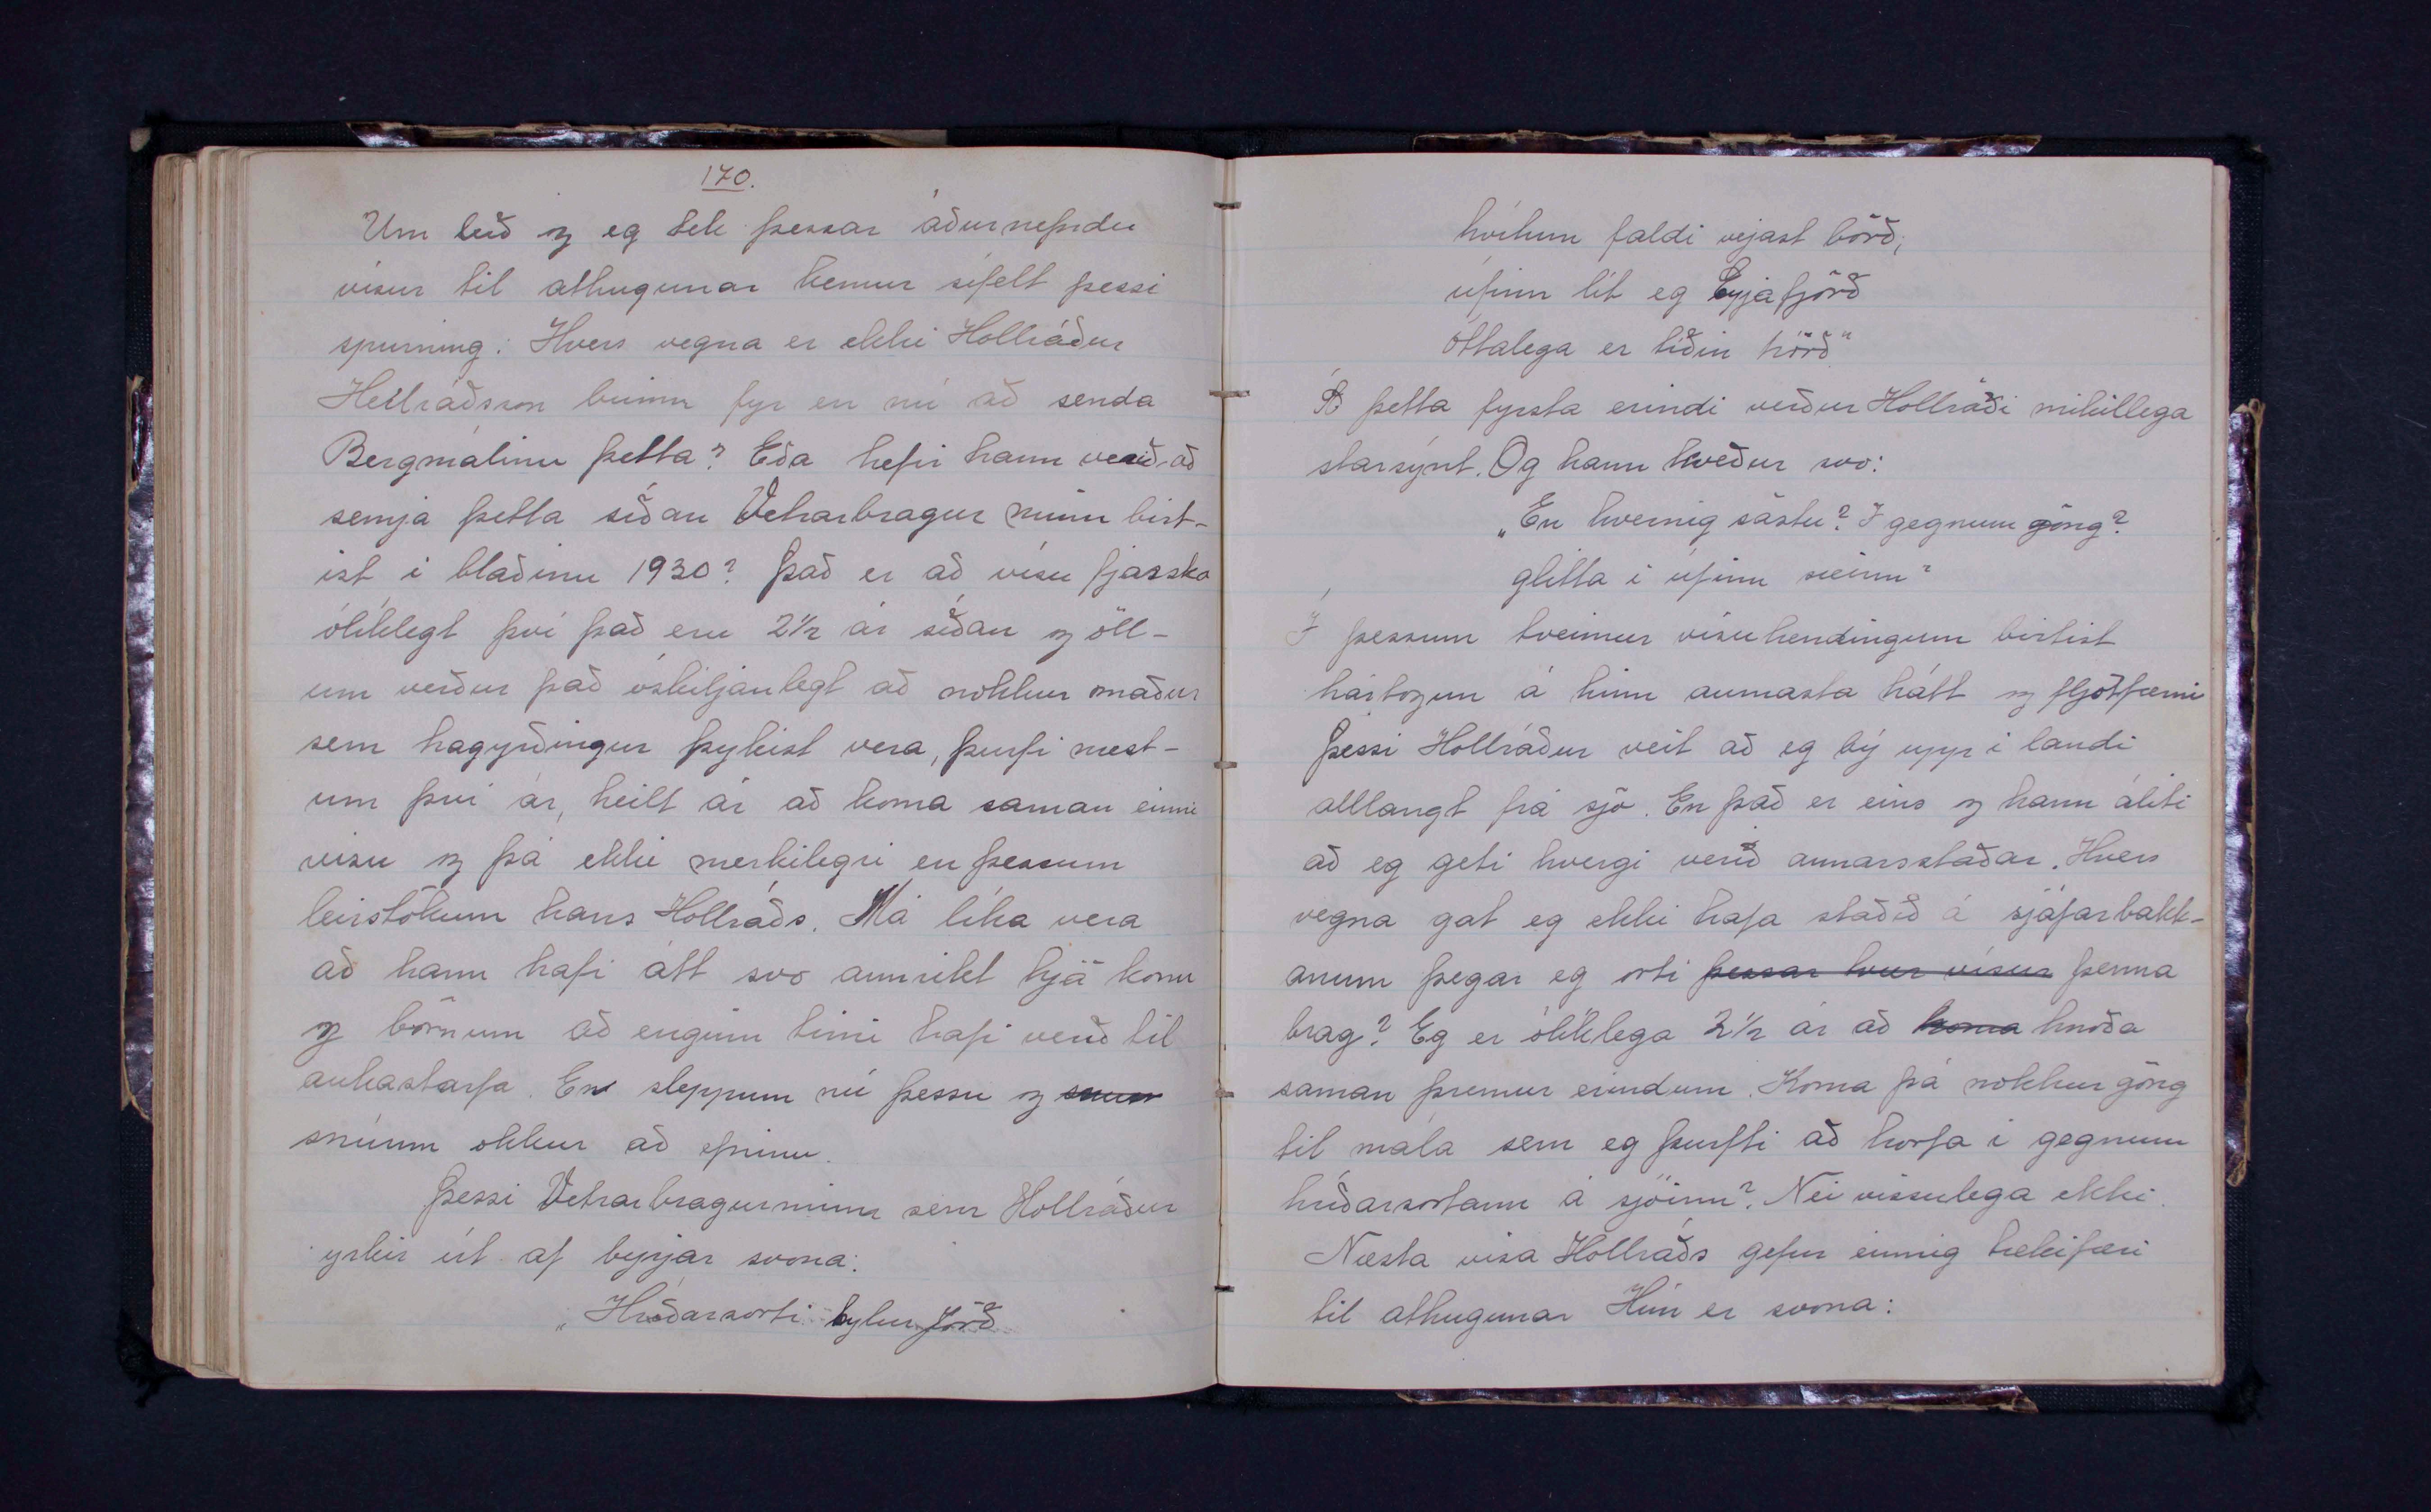 170.
Um leið og eg tek þessar áðurnefndu
vísur til athugunar kemur sífelt þessi
spurning: Hvers vegna er ekki Hollráður
Heilráðsson búinn fyr en nú að senda
Bergmálinu þetta? Eða hefir hann verið að
semja þetta síðan Vetrarbragur minn birt-
ist í blaðinu 1930? Það er að vísu fjarska
ólíklegt því það eru 2½ ár síðan og öll-
um verður það óskiljanlegt að nokkur maður
sem hagyrðingur þykist vera, þurfi mest-
um því ár, heilt ár að koma saman einni
vísu og þá ekki merkilegri en þessum
leirstökum hans Hollráðs. Má líka vera
að hann hafi átt svo annríkt hjá konu
og börnum að enginn tími hafi verið til
aukastarfa. En sleppum nú þessu og snum
snúum okkur að efninu.
Þessi Vetrarbragur minn sem Hollráður
yrkir út af byrjar svona:
„Hríðarsorti bylur jörð
hvítum faldi vejast börð,
úfinn lít eg Eyjafjörð
óttalega er tíðin hörð"
Á þetta fyrsta erindi verður Hollráði mikillega
starsýnt. Og hann kveður svo:
„En hvernig sástu? Í gegnum göng?
glitta í úfinn sæinn"
Í þessum tveimur vísuhendingum birtist
hártogun á hinn aumasta hátt og fljótfærni
Þessi Hollráður veit að eg bý upp í landi
alllangt frá sjó. En það er eins og hann áliti
að eg geti hvergi verið annarsstaðar. Hvers
vegna gat eg ekki hafa staðið á sjáfarbakk-
anum þegar eg orti þessar tvær vísur þenna
brag? Eg er ólíklega 2½ ár að koma hnoða
saman þremur erindum. Koma þá nokkur göng
til mála sem eg þurfti að horfa í gegnum
hríðarsortann á sjóinn? Nei vissulega ekki.
Næsta vísa Hollráðs gefur einnig tækifæri
til athugunar Hún er svona: